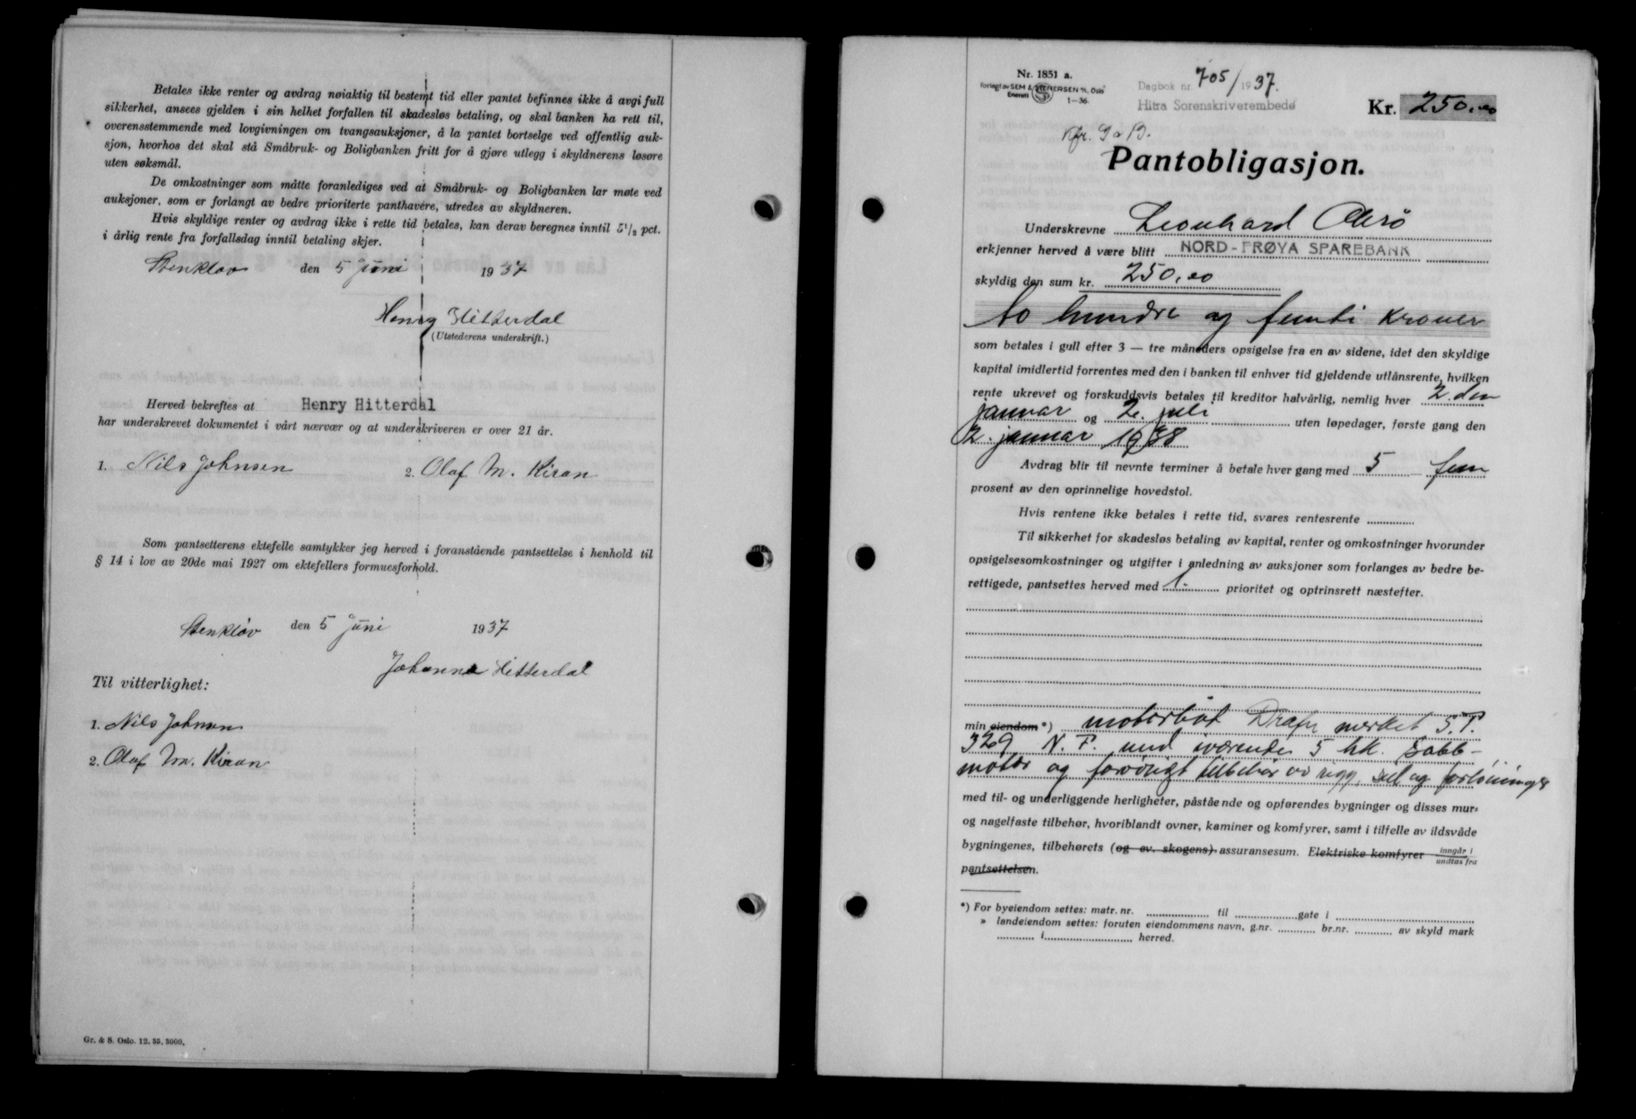 Betales ikke renter og avdrag nøiaktig til bestemt tid eller pantet befinnes ikke å avgi full
sikkerhet, ansees gjelden i sin helhet forfallen til skadesløs betaling, og skal banken ha rett til,
overensstemmende med lovgivningen om tvangsauksjoner, å la pantet bortselge ved offentlig auk-
sjon, hvorhos det skal stå Småbruk- og Boligbanken fritt for å gjøre utlegg i skyldnerens løsøre
uten søksmål.
De omkostninger som måtte foranlediges ved at Småbruk- og Boligbanken lar møte ved
auksjoner, som er forlangt av bedre prioriterte panthavere, utredes av skyldneren.
Hvis skyldige renter og avdrag ikke i rette tid betales, kan derav beregnes inntil 5½ pct.
i årlig rente fra forfallsdag inntil betaling skjer.
Stenkløv den 5 juni 1937
Henry Hitterdal
(Utstederens underskrift.)
Herved bekreftes at Henry Hitterdal
har underskrevet dokumentet i vårt nærvær og at underskriveren er over 21 år.
1. Nils Johnsen 2. Olaf M. Kiran
Som pantsetterens ektefelle samtykker jeg herved i foranstående pantsettelse i henhold til
§ 14 i lov av 20de mai 1927 om ektefellers formuesforhold.
Stenkløv den 5 juni 1937
Johanna Hitterdal
Til vitterlighet:
1. Nils Johnsen
2. Olaf M. Kiran
Gr. & S. Oslo. 12. 35. 3000.
Nr. 1851 a.
Forlagt av SEM & STENERSEN A/S, Oslo
Enerett
1—36.
Dagbok nr. 705/1937.
Hitra Sorenskriverembede
Kr. 250.00
Pantobligasjon.
Underskrevne Leonhard
erkjenner herved å være blitt NORD-FRØYA SPAREBANK
skyldig den sum kr. 250,00
to hundre og femti kroner
som betales i gull efter 3 — tre måneders opsigelse fra en av sidene, idet den skyldige
kapital imidlertid forrentes med den i banken til enhver tid gjeldende utlånsrente, hvilken
rente ukrevet og forskuddsvis betales til kreditor halvårlig, nemlig hver 2. den
januar og 2. juli uten løpedager, første gang den
2. januar 1938
Avdrag blir til nevnte terminer å betale hver gang med 5 — fem
prosent av den oprinnelige hovedstol.
Hvis rentene ikke betales i rette tid, svares rentesrente
Til sikkerhet for skadesløs betaling av kapital, renter og omkostninger hvorunder
opsigelsesomkostninger og utgifter i anledning av auksjoner som forlanges av bedre be-
rettigede, pantsettes herved med 1. prioritet og optrinsrett næstefter.
min eiendom *) motorbåt merket S.T.
329 N. F. med iværende 5 hk. Sabb-
motor og forøvrigt tilbehør av rigg, seil og fortøininger
med til- og underliggende herligheter, påstående og opførendes bygninger og disses mur-
og nagelfaste tilbehør, hvoriblandt ovner, kaminer og komfyrer, samt i tilfelle av ildsvåde
bygningenes, tilbehørets (og ev. skogens) assuransesum. Elektriske komfyrer inngår i
undtas fra
pantsettelsen.
*) For byeiendom settes: matr. nr. til gate i
» landeiendom settes: foruten eiendommens navn, g.nr. br.nr. av skyld mark
i herred.